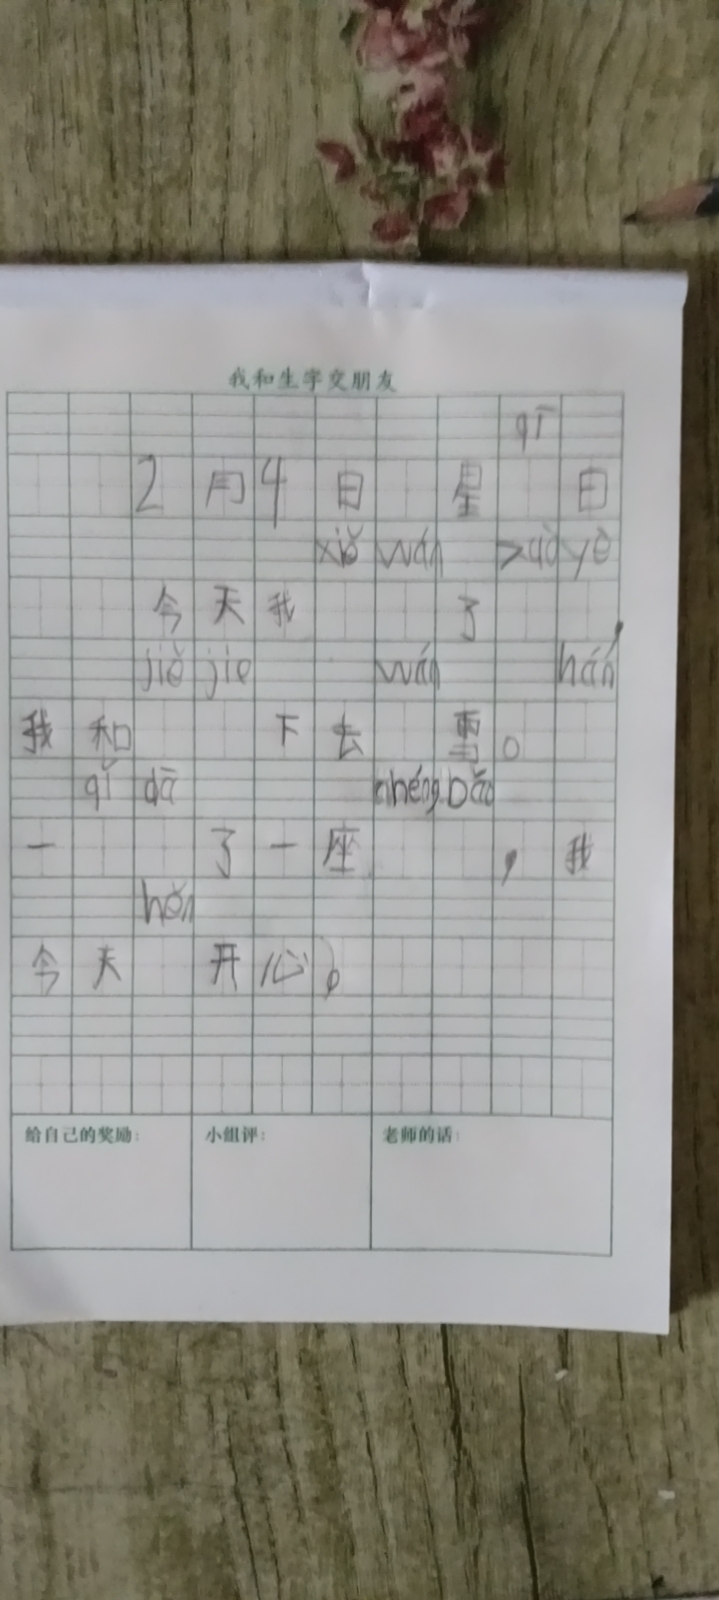 我和生字交朋友
qī
2月4日 星 日
xiě wán zuò yè
今天我 了 ,
jiě jie wán
我和 下去 雪。
qǐ dā bǎo
一 了一座 ,我
hěn
今天 开心。
给自己的奖励: 小组评: 老师的话: